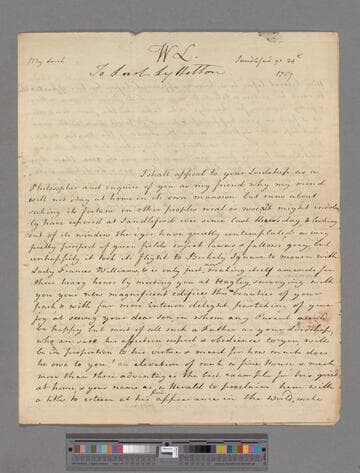 W L.
My Lord
Sandleford ye 24th
To Lord Lyttelton
1759
I shall appeal to your Lordship as a
Philosopher and enquire of you as my friend why my mind
will not stay at home in its own mansion but runs about
seeking its fortune in other peoples
have reposed at Sandleford ever since last Thursday & looking
out of its window the eyes have quietly contemplated a very
pretty prospect of green fields russet lawns & fallows grey, but
unhappily it took its flight to Berkely Square to mourn with
Lady Frances Williams, & is only just making itself amends for
those heavy hours by meeting you at Hagley, surveying with
you your new magnificent edifice the beauties of your
park & with far more Entire delight partaking of your
joy at seeing your dear Son in whom any Parent
be happy but most of all such a Father as your Lordship,
who are sure his affection respect & obedience to you will
be in proportion to his virtue & merit for how much does
he owe to you! an elevation of such a fine House & much
more than these advantages the best example for his guide
at home & your name as a Herald to proclaim him with
a title to esteem at his first appearance in the World, make